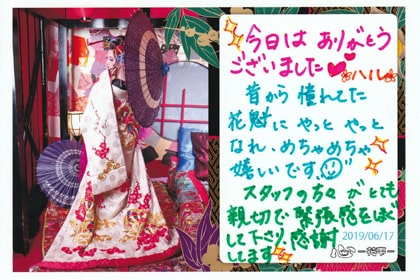 今日は ありがとう
ございました ハル
昔から 憧れてた
花魁に やっと やっと
なれ、めちゃめちゃ
嬉しいです。
スタッフの方々 がとても
親切で 緊張感をほぐ
して下さり 感謝
します。
2019/06/17